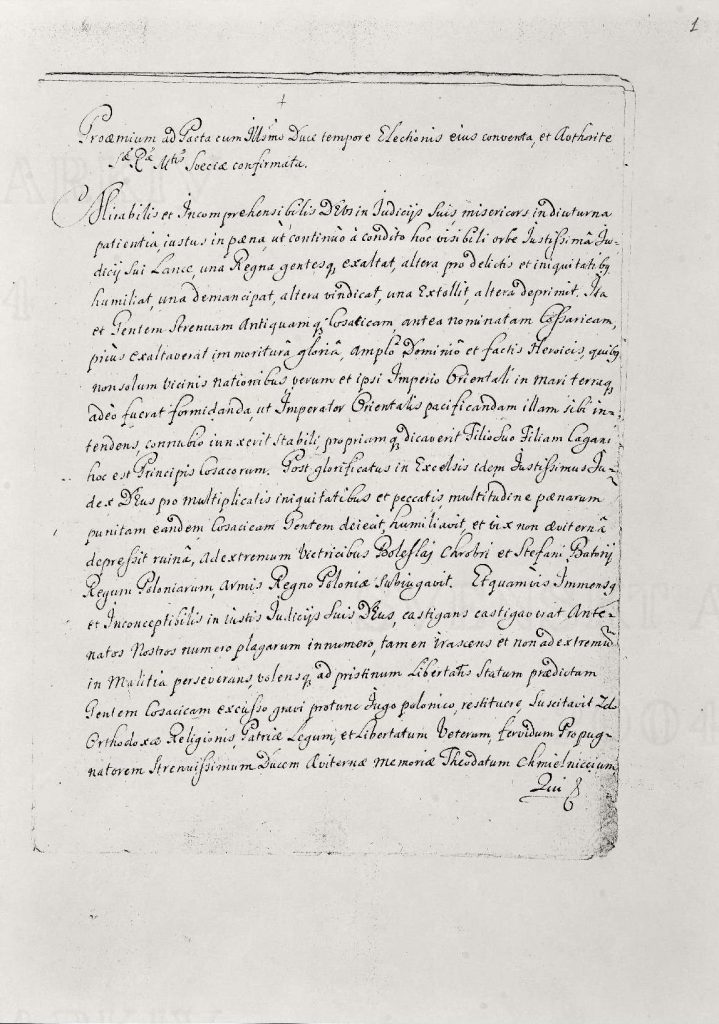 1
Proæmium ad Pacta cum Illsmo Duce tempore Electionis eius conventa, et Authorite
Sæ Ræ Mtis Sveciæ confirmata.
Mirabilis et Incomprehensibilis DEus in Iudicijs suis, misericors in diuturna
patientia, iustus in pæna, ut continuò à condito hoc visibili orbe Iustissimâ Iu-
dicij Sui Lance, una Regna gentesq, exaltat, altera pro delictis et iniquitatiby
humiliat, una demancipat, altera vindicat, una Extollit, altera deprimit. Ita
et Gentem Strenuam Antiquamq; Cosacicam, antea nominatam Cossaricam,
priùs exaltaverat immoriturâ gloriâ, Amplo Dominio et factis Heroicis, quiby
non solum vicinis nationibus, verum et ipsi Imperio Orientali in mari terraq,
adeò fuerat formidanda, ut Imperator Orientalis pacificandam illam sibi in-
tendens, connubio iunxerit stabili, propriamq dicaverit Filio Suo Filiam Cagani
hoc est Principis Cosacorum. Post glorificatus in Excelsis idem Iustissimus Iu-
dex DEus pro multiplicatis iniquitatibus et peccatis, multitudine pænarum
punitam eandem Cosacicam Gentem deiecit, humiliavit, et vix non æviternâ
depressit ruinâ, ad extremum Victricibus Boleslaj Chrobri et Stefani Batorij
Regum Poloniarum, Armis Regno Poloniæ Subiugavit. Et quamvis Immensq
et Inconceptibilis in iustis Iudicijs Suis DEus, castigans castigaverat Ante-
natos Nostros numero plagarum innumero, tamen irascens et non ad extremũ
in Malitia perseverans, volensq, ad pristinum Libertatis Statum prædictam
Gentem Cosacicam excusso gravi protunc Iugo polonico, restituere, Suscitavit Zelo
Orthodoxæ Religionis, Patriæ Legum, et Libertatum Veterum, fervidum Propug-
natorem Strenuissimum Ducem Æviternæ memoriæ Theodatum Chmielniccium
Qui